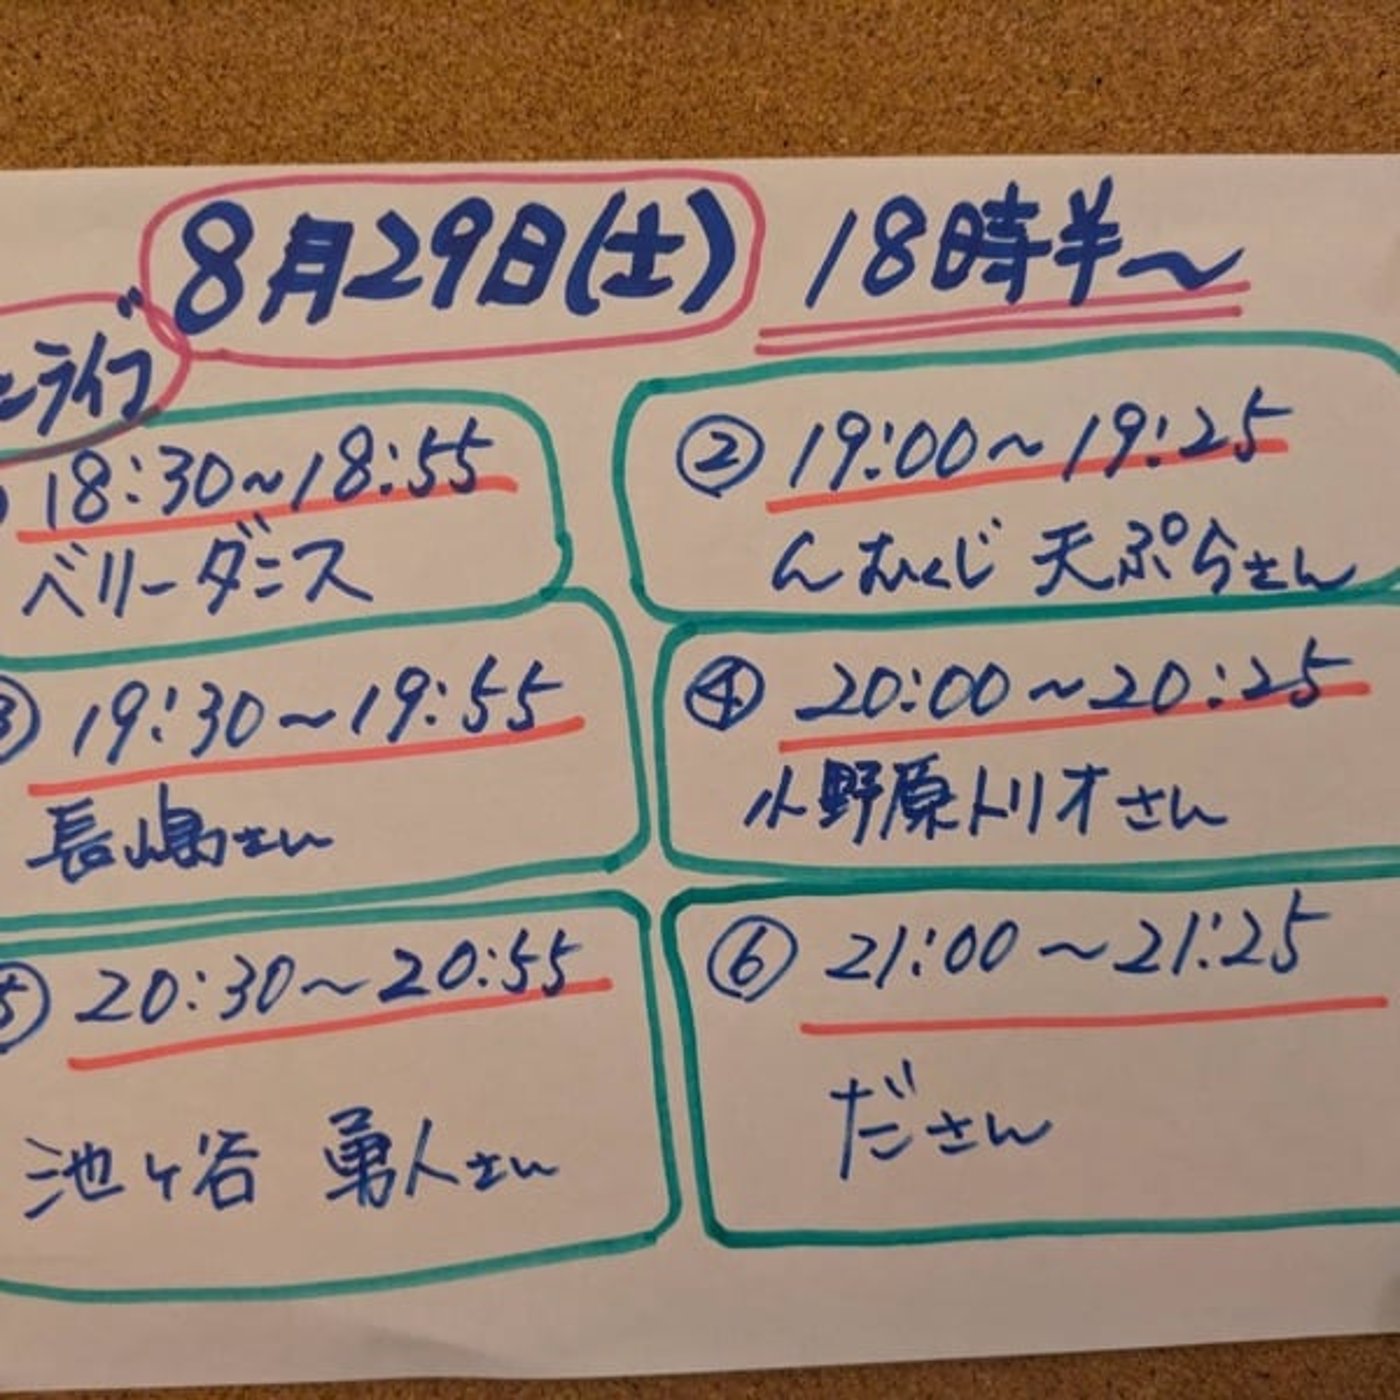 8月29日(土) 18時半〜
ライブ
18:30〜18:55
ベリーダンス
② 19:00〜19:25
んむくじ 天ぷらさん
③ 19:30〜19:55
長嶋さん
④ 20:00〜20:25
小野原トリオさん
⑤ 20:30〜20:55
池ヶ谷 勇人さん
⑥ 21:00〜21:25
ださん